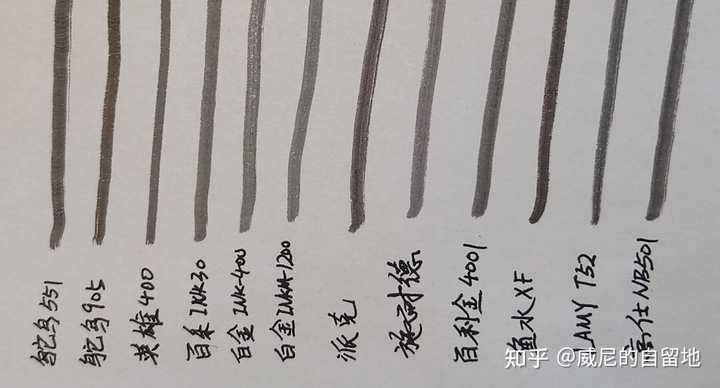 鸵鸟551
鸵鸟905
英雄400
百乐INK30
白金INK-400
白金INKM-1200
派克
施耐德
百利金4001
鱼水XF
LAMY T52
写仕NB501
知乎 @威尼的自留地